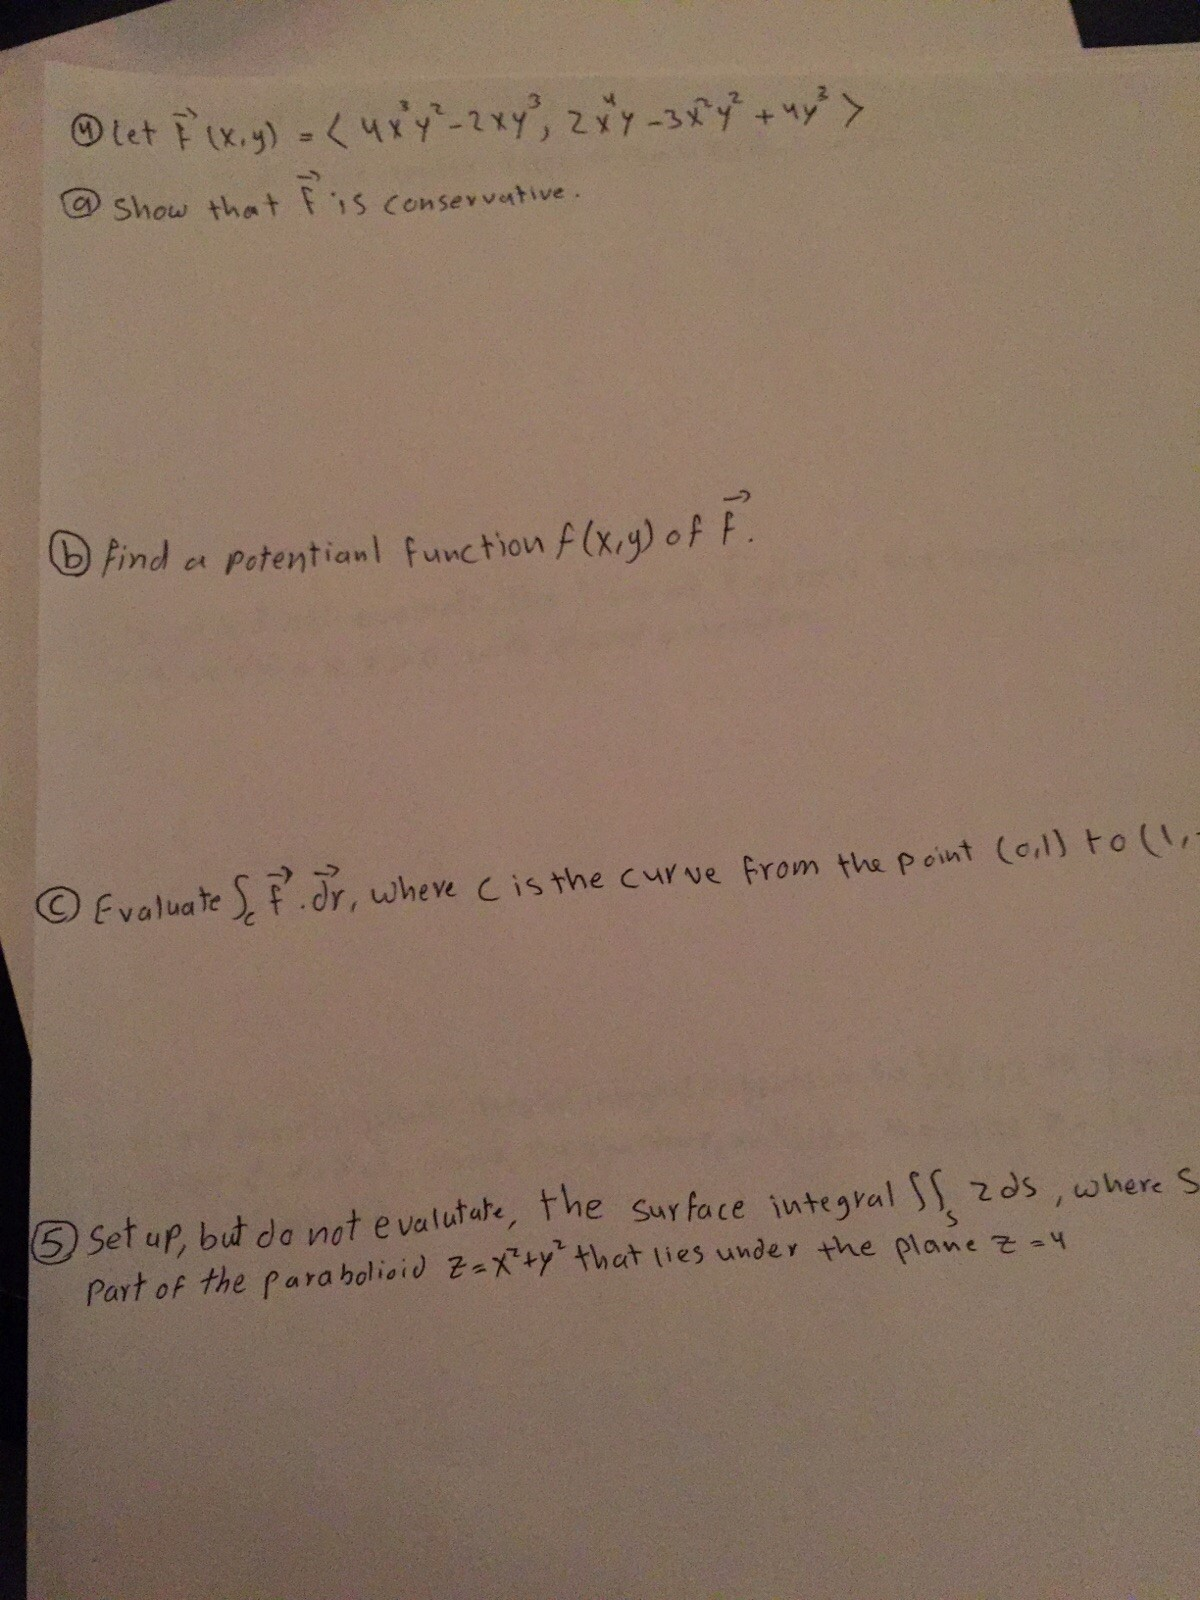 ④ Let F⃗(x,y) = < 4x³y²-2xy³, 2x⁴y-3x²y²+4y³ >
ⓐ Show that F⃗ is conservative.
ⓑ find a potentianl function f(x,y) of F⃗.
ⓒ Evaluate ∫c F⃗.d⃗r, where C is the curve from the point (0,1) to (1,
⑤ Set up, but do not evalutate, the surface integral ∬s zds, where S
Part of the parabolioid z=x²+y² that lies under the plane z=4